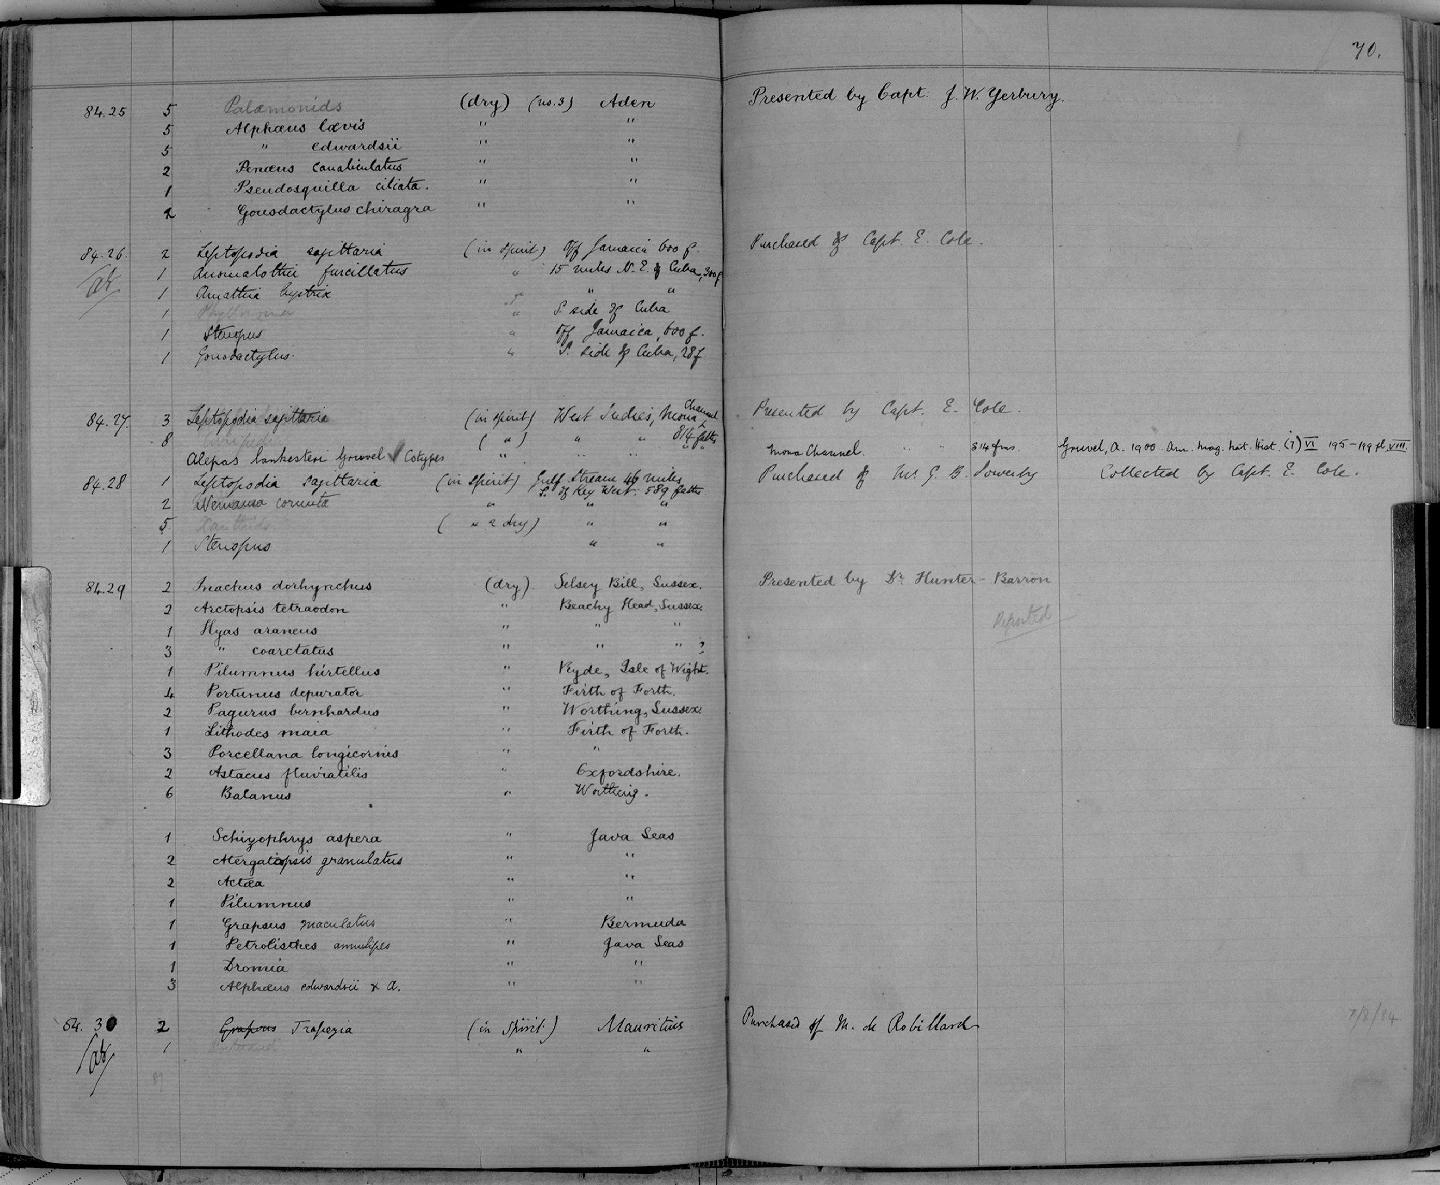 70.
84.25 5 Palæmonids (dry) (ns. 3) Aden Presented by Capt. J. W. Yerbury.
5 Alphæus lævis " "
5 " edwardsii " "
2 Penæus canaliculatus " "
1 Pseudosquilla ciliata. " "
2 Gonodactylus chiragra " "
84.26. 2 Leptopodia sagittaria (in spirit) Off Jamaica 600 f. Purchased of Capt. E. Cole.
1 furcillatus " 15 miles N. E. of Cuba, 300 f
1 Amathia hystrix " " "
1 " S side of Cuba
1 Stenopus " Off Jamaica, 600 f.
1 Gonodactylus. " S. side of Cuba, 28 f
84.27. 3 Leptopodia sagittaria (in spirit) West Indies, Mona Channel Presented by Capt. E. Cole.
8 Cirripedi ( " ) " " 814 faths
Alepas lankesteri Gruvel Cotypes " " " " Mona Channel. " " 814 fms. Gruvel, A. 1900 Ann. Mag. Nat. Hist. (7) VI 195-199 pl. VIII.
84.28 1 Leptopodia sagittaria (in spirit) Gulf Stream 46 miles S. of Key West. 589 faths Purchased of Mr. G. B. Sowerby Collected by Capt. E. Cole.
2 cornuta " " "
5 Xanthids ( " & dry) " "
1 Stenopus " "
84.29 2 Inachus dorhynchus (dry). Selsey Bill, Sussex. Presented by Dr. Hunter-Barron
2 Arctopsis tetraodon " Beachy Head, Sussex. Reported
1 Hyas araneus " " "
3 " coarctatus " " " ?
1 Pilumnus hirtellus " Ryde, Isle of Wight.
4 Portunus depurator " Firth of Forth.
2 Pagurus bernhardus " Worthing, Sussex.
1 Lithodes maia " Firth of Forth.
3 Porcellana longicornis " "
2 Astacus fluviatilis " Oxfordshire.
6 Balanus " Worthing.
1 Schizophrys aspera " Java Seas
2 Atergatopsis granulatus " "
2 Actæa " "
1 Pilumnus " "
1 Grapsus maculatus " Bermuda
1 Petrolisthes annulipes " Java Seas
1 Dromia " "
3 Alphæus edwardsii & A. " "
84. 30 2 Grapsus Trapezia (in Spirit.) Mauritius Purchased of M. de Robillard 7/8/84
1 " "